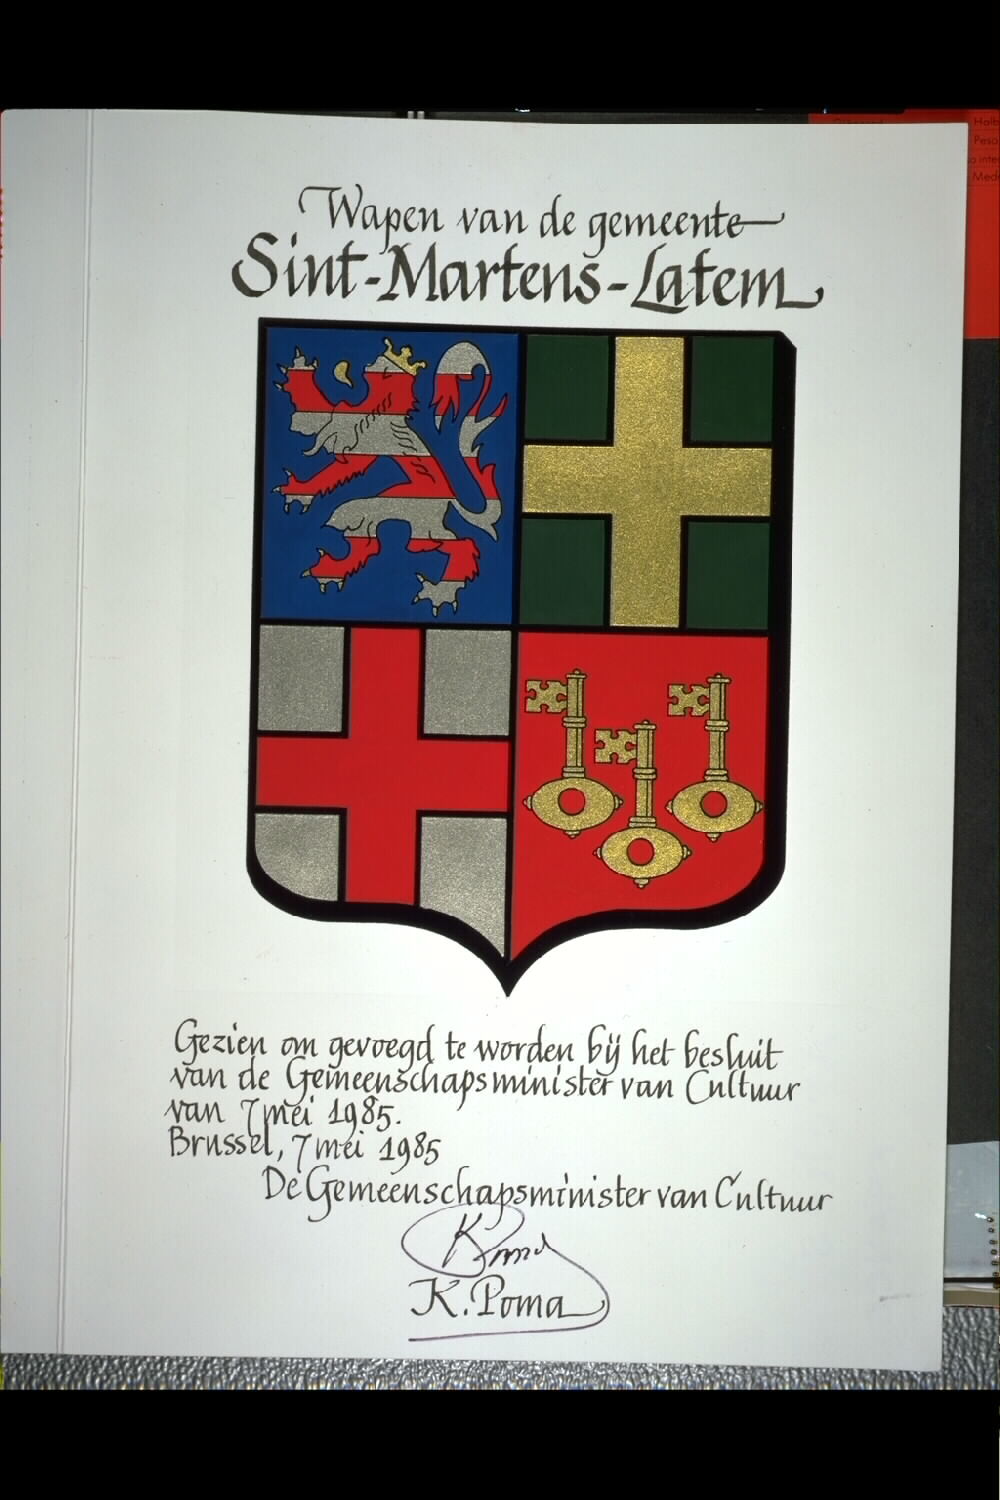 Wapen van de gemeente
Sint-Martens-Latem
Gezien om gevoegd te worden bij het besluit
van de Gemeenschapsminister van Cultuur
van 7 mei 1985.
Brussel, 7 mei 1985
De Gemeenschapsminister van Cultuur
K. Poma